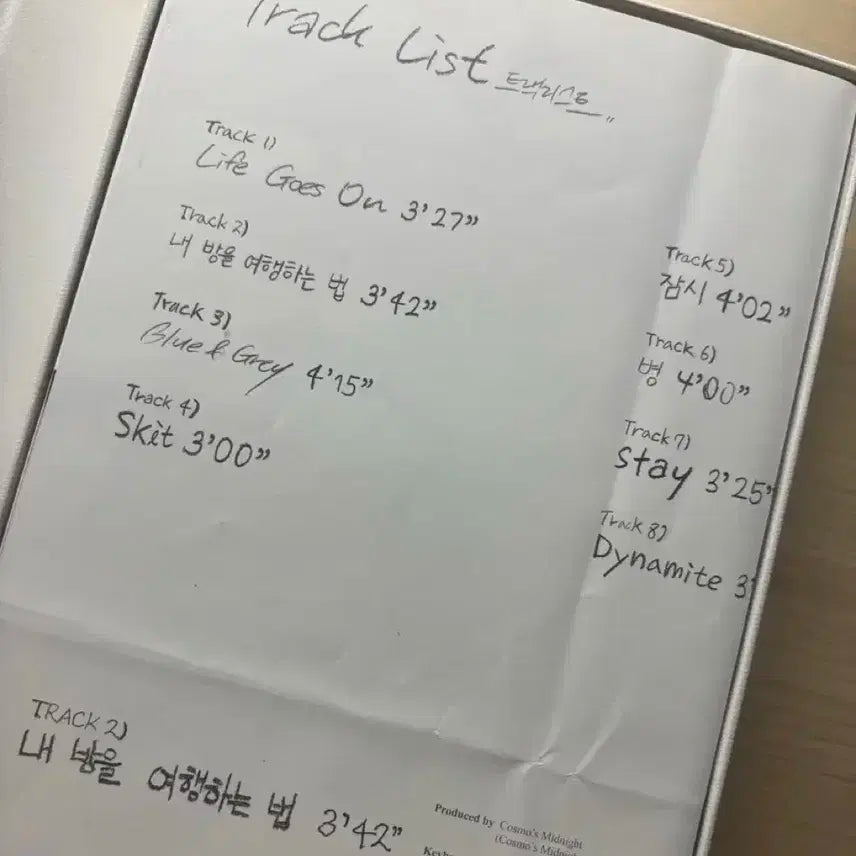 Track List 트랙리스트
Track 1)
Life Goes On 3'27"
Track 2)
내 방을 여행하는 법 3'42"
Track 3)
Blue & Grey 4'15"
Track 4)
Skit 3'00"
Track 5)
잠시 4'02"
Track 6)
병 4'00"
Track 7)
Stay 3'25"
Track 8)
Dynamite 3'
TRACK 2)
내 방을 여행하는 법 3'42"
Produced by Cosmo's Midnight
(Cosmo's